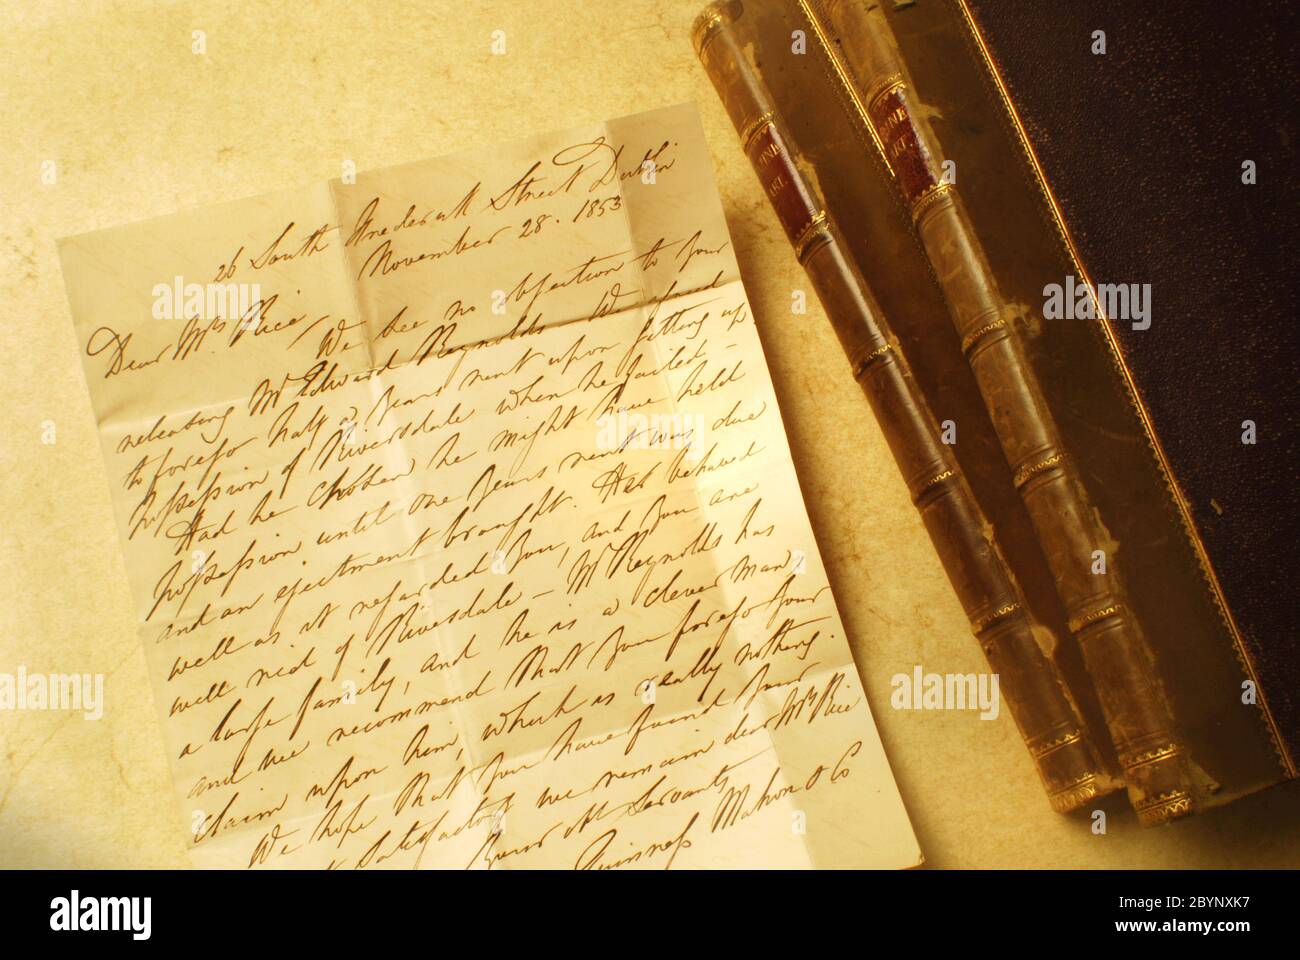 26 South Frederick Street Dublin
November 28. 1853
Dear Mrs Rice,
We see no objection to your
releasing Mr Edward Reynolds We afraid
to forego half a years rent upon getting up
possession of Riversdale when he failed –
Had he chosen he might have held
possession until one years rent was due
and an ejectment brought. Has behaved
well as it regarded you, and you are
well rid of Riversdale – Mr Reynolds has
a large family, and he is a clever man,
and we recommend that you forego your
claim upon him, which is really nothing.
We hope that you have found your
satisfactory we remain dear Mrs Rice
Your obt Servants
Guinness Mahon & Co
FINE
ART.
FINE
ART.
alamy
alamy
Image ID: 2BYNXK7
www.alamy.com